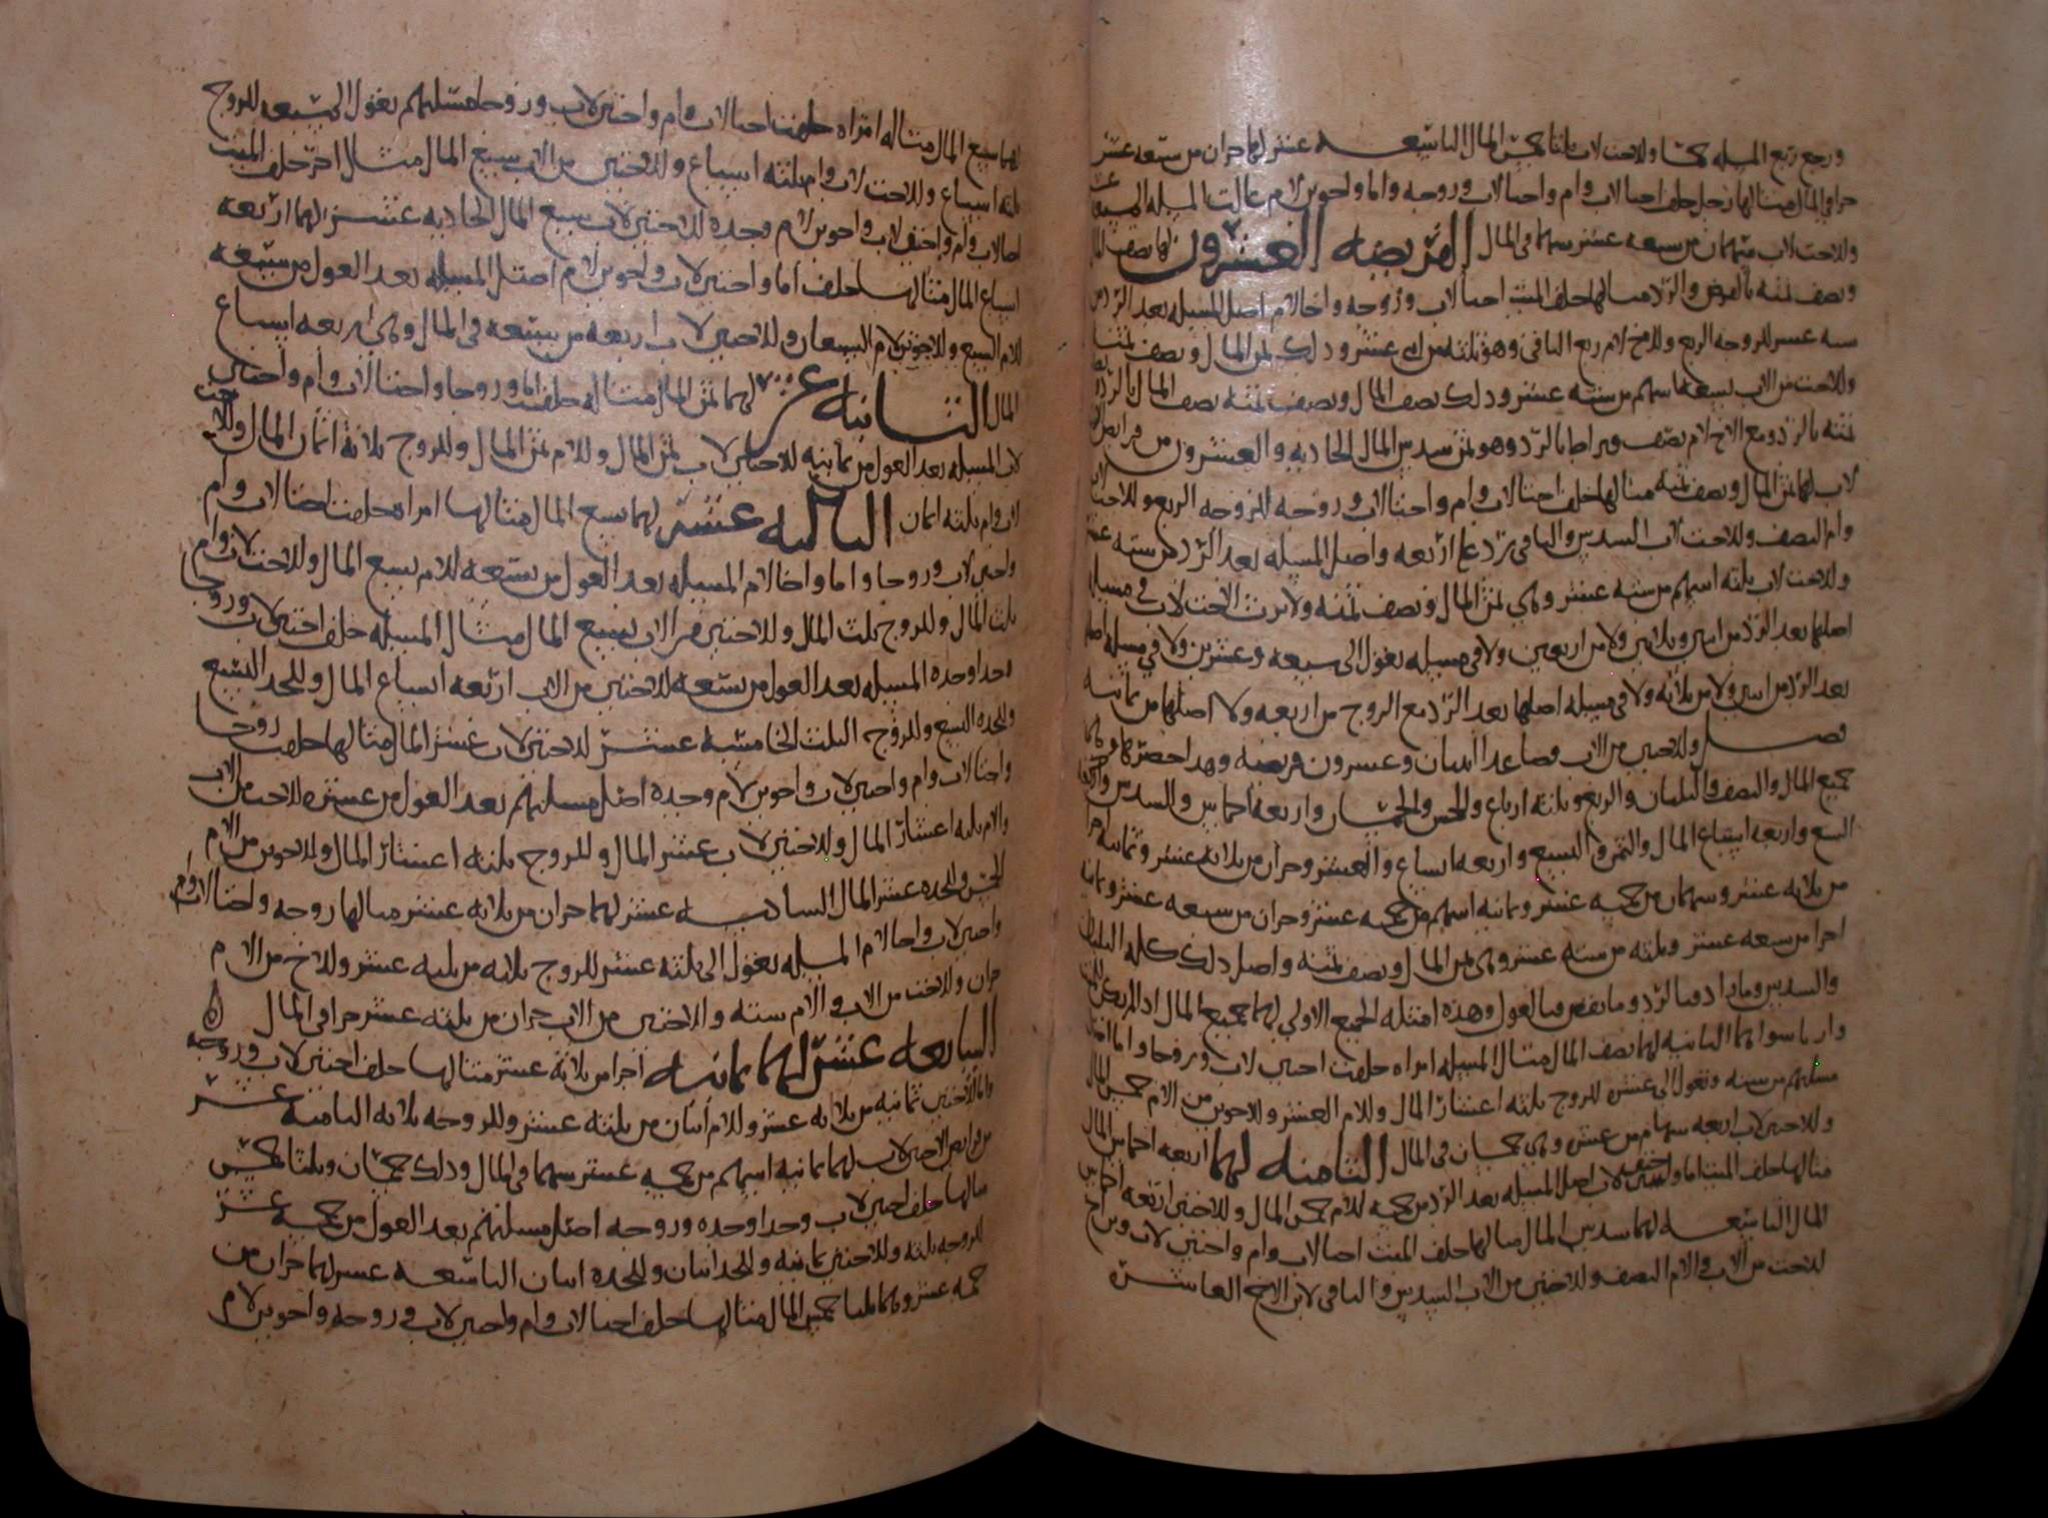 ورجع ربع المسله خمسا وللاخت لاب ثلثا خمس المال التاسعه عشر لها جزان من سبعه عشر
جزا في المال مثالها رجل خلف اختا لاب وام واختا لاب وزوجه واما واخوين لام عالت المسله الى سبعه عشر
وللاخت لاب سهمان من سبعه عشر سهما في المال الفريضه العشرون لها نصف المال
ونصف ثمنه بالفرض والرد مثالها خلف الميت اختا لاب وزوجه واخا لام اصل المسله بعد الرد من
سته عشر للزوجه الربع وللاخ لام ربع الباقي وهو ثلثه من اثني عشر وذلك ثمن المال ونصف ثمنه
وللاخت من الاب تسعه اسهم من سته عشر وذلك نصف المال ونصف ثمنه نصف المال بالرد
ثمنه بالرد ومع الاخ لام نصف قيراط بالرد وهو ثمن سدس المال الحاديه والعشرون من فرايض
لاب لها ثمن المال ونصف ثمنه مثالها خلف اختا لاب وام واختا لاب وزوجه للزوجه الربع وللاخت لاب
وام النصف وللاخت لاب السدس والباقي يرد على اربعه واصل المسله بعد الرد من سته عشر
وللاخت لاب ثلثه اسهم من سته عشر وهي ثمن المال ونصف ثمنه ولا يرث الاخت لاب في مسله
اصلها بعد الرد من اثنين وثلاثين ولا من اربعين ولا في مسله تعول الى سبعه وعشرين ولا في مسله اصلها
بعد الرد من اثنين ولا من ثلاثه ولا في مسله اصلها بعد الرد مع الزوج من اربعه ولا اصلها من ثمانيه
فصل وللاختين من الاب فصاعدا اثنتان وعشرون فريضه وهذا حصرها
جميع المال والنصف والثلثان والربع وثلثه ارباع والخمس والخمسان واربعه اخماس والسدس
السبع واربعه اسباع المال والثمن والتسع واربعه اتساع والعشر وجزان من ثلاثه عشر وثمانيه اجزا
من ثلاثه عشر وسهمان من خمسه عشر وثمانيه اسهم من خمسه عشر وجزان من سبعه عشر وثمانيه
اجزا من سبعه عشر وثلثه من سته عشر وهي ثمن المال ونصف ثمنه واصل ذلك كله الثلثان
والسدس وما زاد فبالرد وما نقص فبالعول وهذه امثله الجميع الاولى لهما جميع المال
الثانيه لهما نصف المال مثال المسله امراه خلفت اختين لاب وزوجا واما
مسلتهم من سته وتعول الى عشره للزوج ثلثه اعشار المال وللام العشر وللاخوين من الام خمس المال
وللاختين لاب اربعه سهام من عشره وهي خمسان في المال الثامنه لهما اربعه اخماس المال
مثالها خلف الميت اما واختين لاب اصل المسله بعد الرد من خمسه للام خمس المال وللاختين اربعه اخماس
المال التاسعه لهما سدس المال مثالها خلف الميت اختا لاب وام واختين لاب وابن اخ
للاخت من الاب والام النصف وللاختين من الاب السدس والباقي لابن الاخ العاشره
لهما سبع المال مثاله امراه خلفت اختا لاب وام واختين لاب وزوجا مسلتهم تعول الى سبعه للزوج
ثلثه اسباع وللاخت لاب وام ثلثه اسباع وللاختين من الاب سبع المال مثال اخر خلف الميت
اختا لاب وام واختين لاب واخوين لام وجده للاختين لاب سبع المال الحاديه عشر لهما اربعه
اسباع المال مثالها خلف اما واختين لاب واخوين لام اصل المسله بعد العول من سبعه
للام السبع وللاخوين لام السبعان وللاختين لاب اربعه من سبعه في المال وهي اربعه اسباع
المال الثانيه عشر لهما ثمن المال مثاله خلفت اما وزوجا واختا لاب وام واختين
لاب المسله بعد العول من ثمانيه للاختين لاب ثمن المال وللام ثمن المال وللزوج ثلاثه اثمان المال وللاخت
لاب وام ثلثه اثمان الثالثه عشر لهما تسع المال مثالها امراه خلفت اختا لاب وام
واختين لاب وزوجا واما واخا لام المسله بعد العول من تسعه للام تسع المال وللاخت لاب وام
ثلث المال وللزوج ثلث المال وللاختين من الاب تسع المال مثال المسله خلف اختين لاب وزوجا
وجدا وجده المسله بعد العول من تسعه للاختين من الاب اربعه اتساع المال وللجد التسع
وللجده التسع وللزوج الثلث الخامسه عشر للاختين لاب عشر المال مثالها خلفت زوجا
واختا لاب وام واختين لاب واخوين لام وجده اصل مسلتهم بعد العول من عشره للاخت من الاب
والام ثلثه اعشار المال وللاختين لاب عشر المال وللزوج ثلثه اعشار المال وللاخوين من الام
الخمس وللجده عشر المال السادسه عشر لهما جزان من ثلاثه عشر مثالها زوجه واختا لاب وام
واختين لاب واخا لام المسله تعول الى ثلثه عشر للزوج ثلاثه من ثلثه عشر وللاخ من الام
جزان وللاخت من الاب والام سته وللاختين من الاب جزان من ثلثه عشر جزا في المال
السابعه عشر لهما ثمانيه اجزا من ثلاثه عشر مثالها خلف اختين لاب وزوجه
واما للاختين ثمانيه من ثلاثه عشر وللام اثنان من ثلثه عشر وللزوجه ثلاثه الثامنه عشر
من فرايض الاختين لاب لهما ثمانيه اسهم من خمسه عشر سهما في المال وذلك خمسان وثلثا خمس
مثالها خلف اختين لاب وجدا وجده وزوجه اصل مسلتهم بعد العول من خمسه عشر
للزوجه ثلثه وللاختين ثمانيه وللجد اثنان وللجده اثنان التاسعه عشر لهما جزان من
خمسه عشر وهما ثلثا خمس المال مثالها خلف اختا لاب وام واختين لاب وزوجه واخوين لام